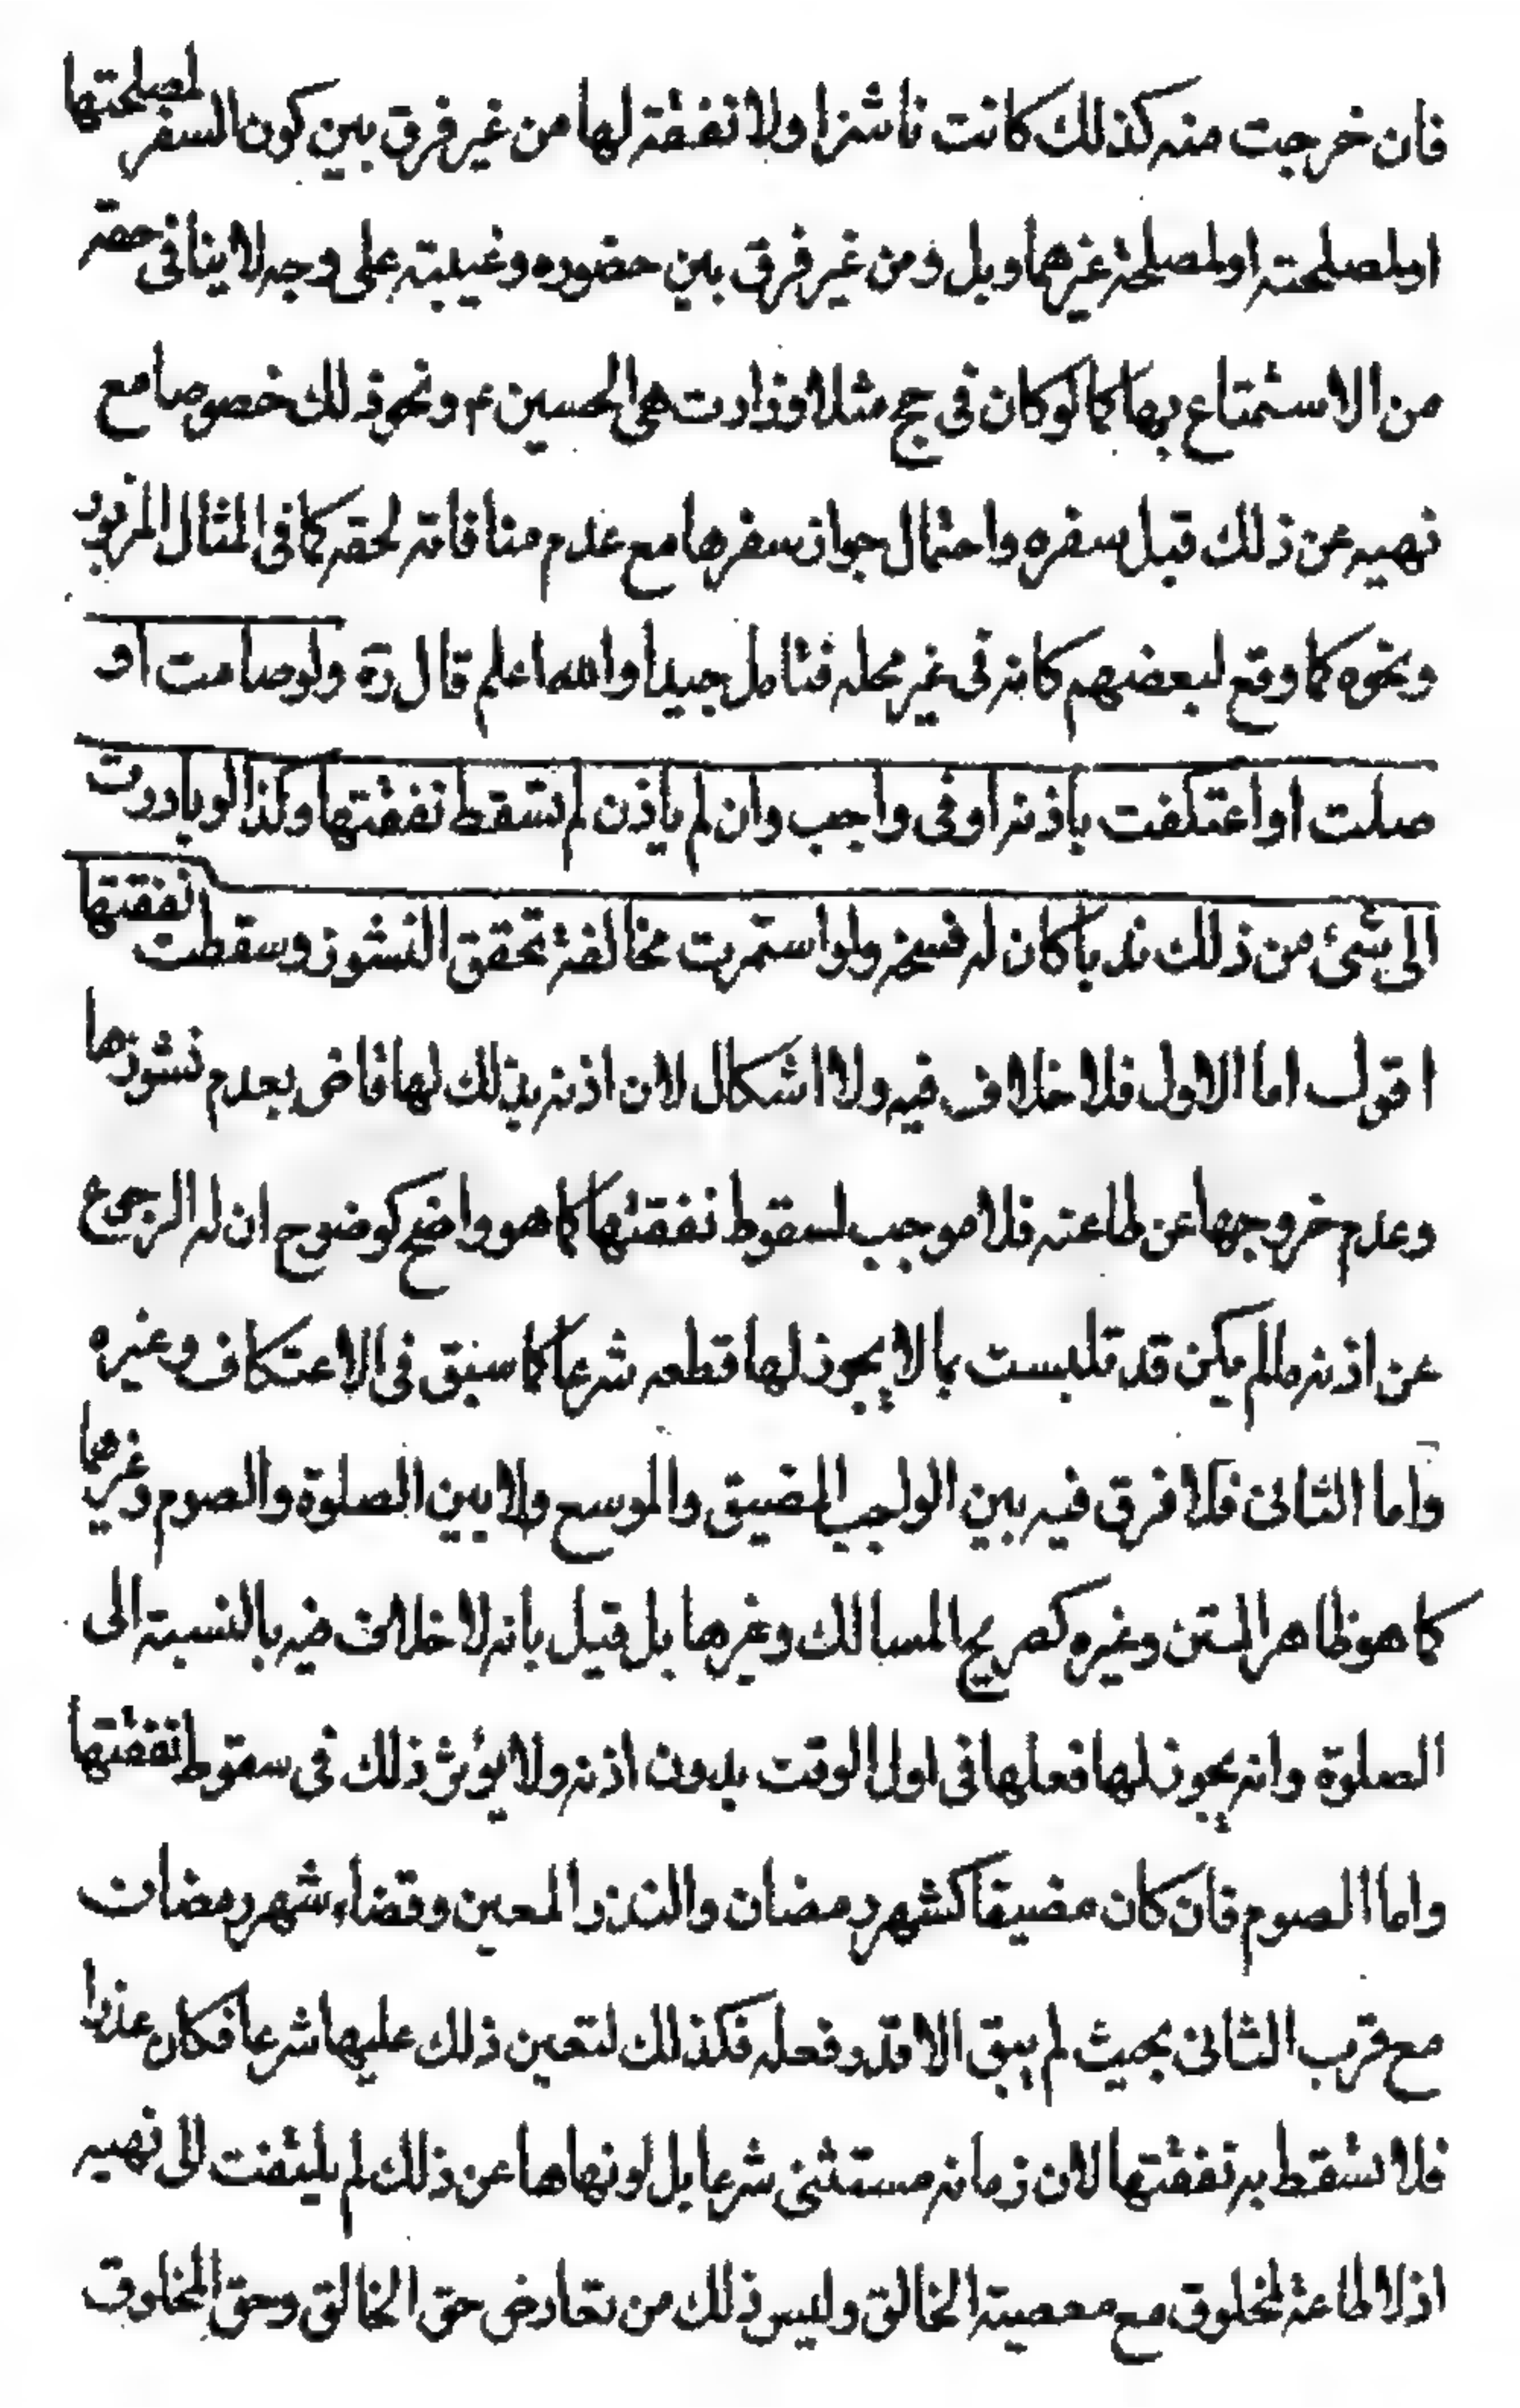 فان خرجت منه كذلك كانت ناشزا ولا نفقة لها من غير فرق بين كون السفر لمصلحتها
او لمصلحته او لمصلحة غيرهما وبل ومن غير فرق بين حضوره وغيبته على وجه لا ينافى حقه
من الاستمتاع بها كما لو كان فى حج مثلا وزارت هى الحسين ع ونحو ذلك خصوصا مع
نهيه عن ذلك قبل سفره واحتمال جواز سفرها مع عدم منافاته لحقه كما فى المثال المزبور
ونحوه كما وقع لبعضهم كانه فى غير محله فتامل جيدا والله اعلم قال ره ولو صامت او
صلت او اعتكفت باذنه او فى واجب وان لم ياذن لم تسقط نفقتها وكذا لو بادرت
الى شئ من ذلك ندبا كان له فسخه ولو استمرت مخالفة تحقق النشوز وسقطت نفقتها
اقول اما الاول فلا خلاف فيه ولا اشكال لان اذنه بذلك لها قاض بعدم نشوزها
وعدم خروجها عن طاعته فلا موجب لسقوط نفقتها كما هو واضح كوضوح ان له الرجوع
عن اذنه مالم يكن قد تلبست بما لا يجوز لها قطعه شرعا كما سبق فى الاعتكاف وغيره
واما الثانى فلا فرق فيه بين الواجب المضيق والموسع ولا بين الصلوة والصوم وغيرهما
كما هو ظاهر المتن وغيره كصريح المسالك وغيرها بل قيل بانه لا خلاف فيه بالنسبة الى
الصلوة وانه يجوز لها فعلها فى اول الوقت بدون اذنه ولا يؤثر ذلك فى سقوط نفقتها
واما الصوم فان كان مضيقا كشهر رمضان والنذر المعين وقضاء شهر رمضان
مع قرب الثانى بحيث لم يبق الا قدر فعله فكذلك لتعين ذلك عليها شرعا فكان عذرا
فلا تسقط به نفقتها لان زمانه مستثنى شرعا بل لو نهاها عن ذلك لم يلتفت الى نهيه
اذ لا طاعة لمخلوق مع معصية الخالق وليس ذلك من تعارض حق الخالق وحق المخلوق